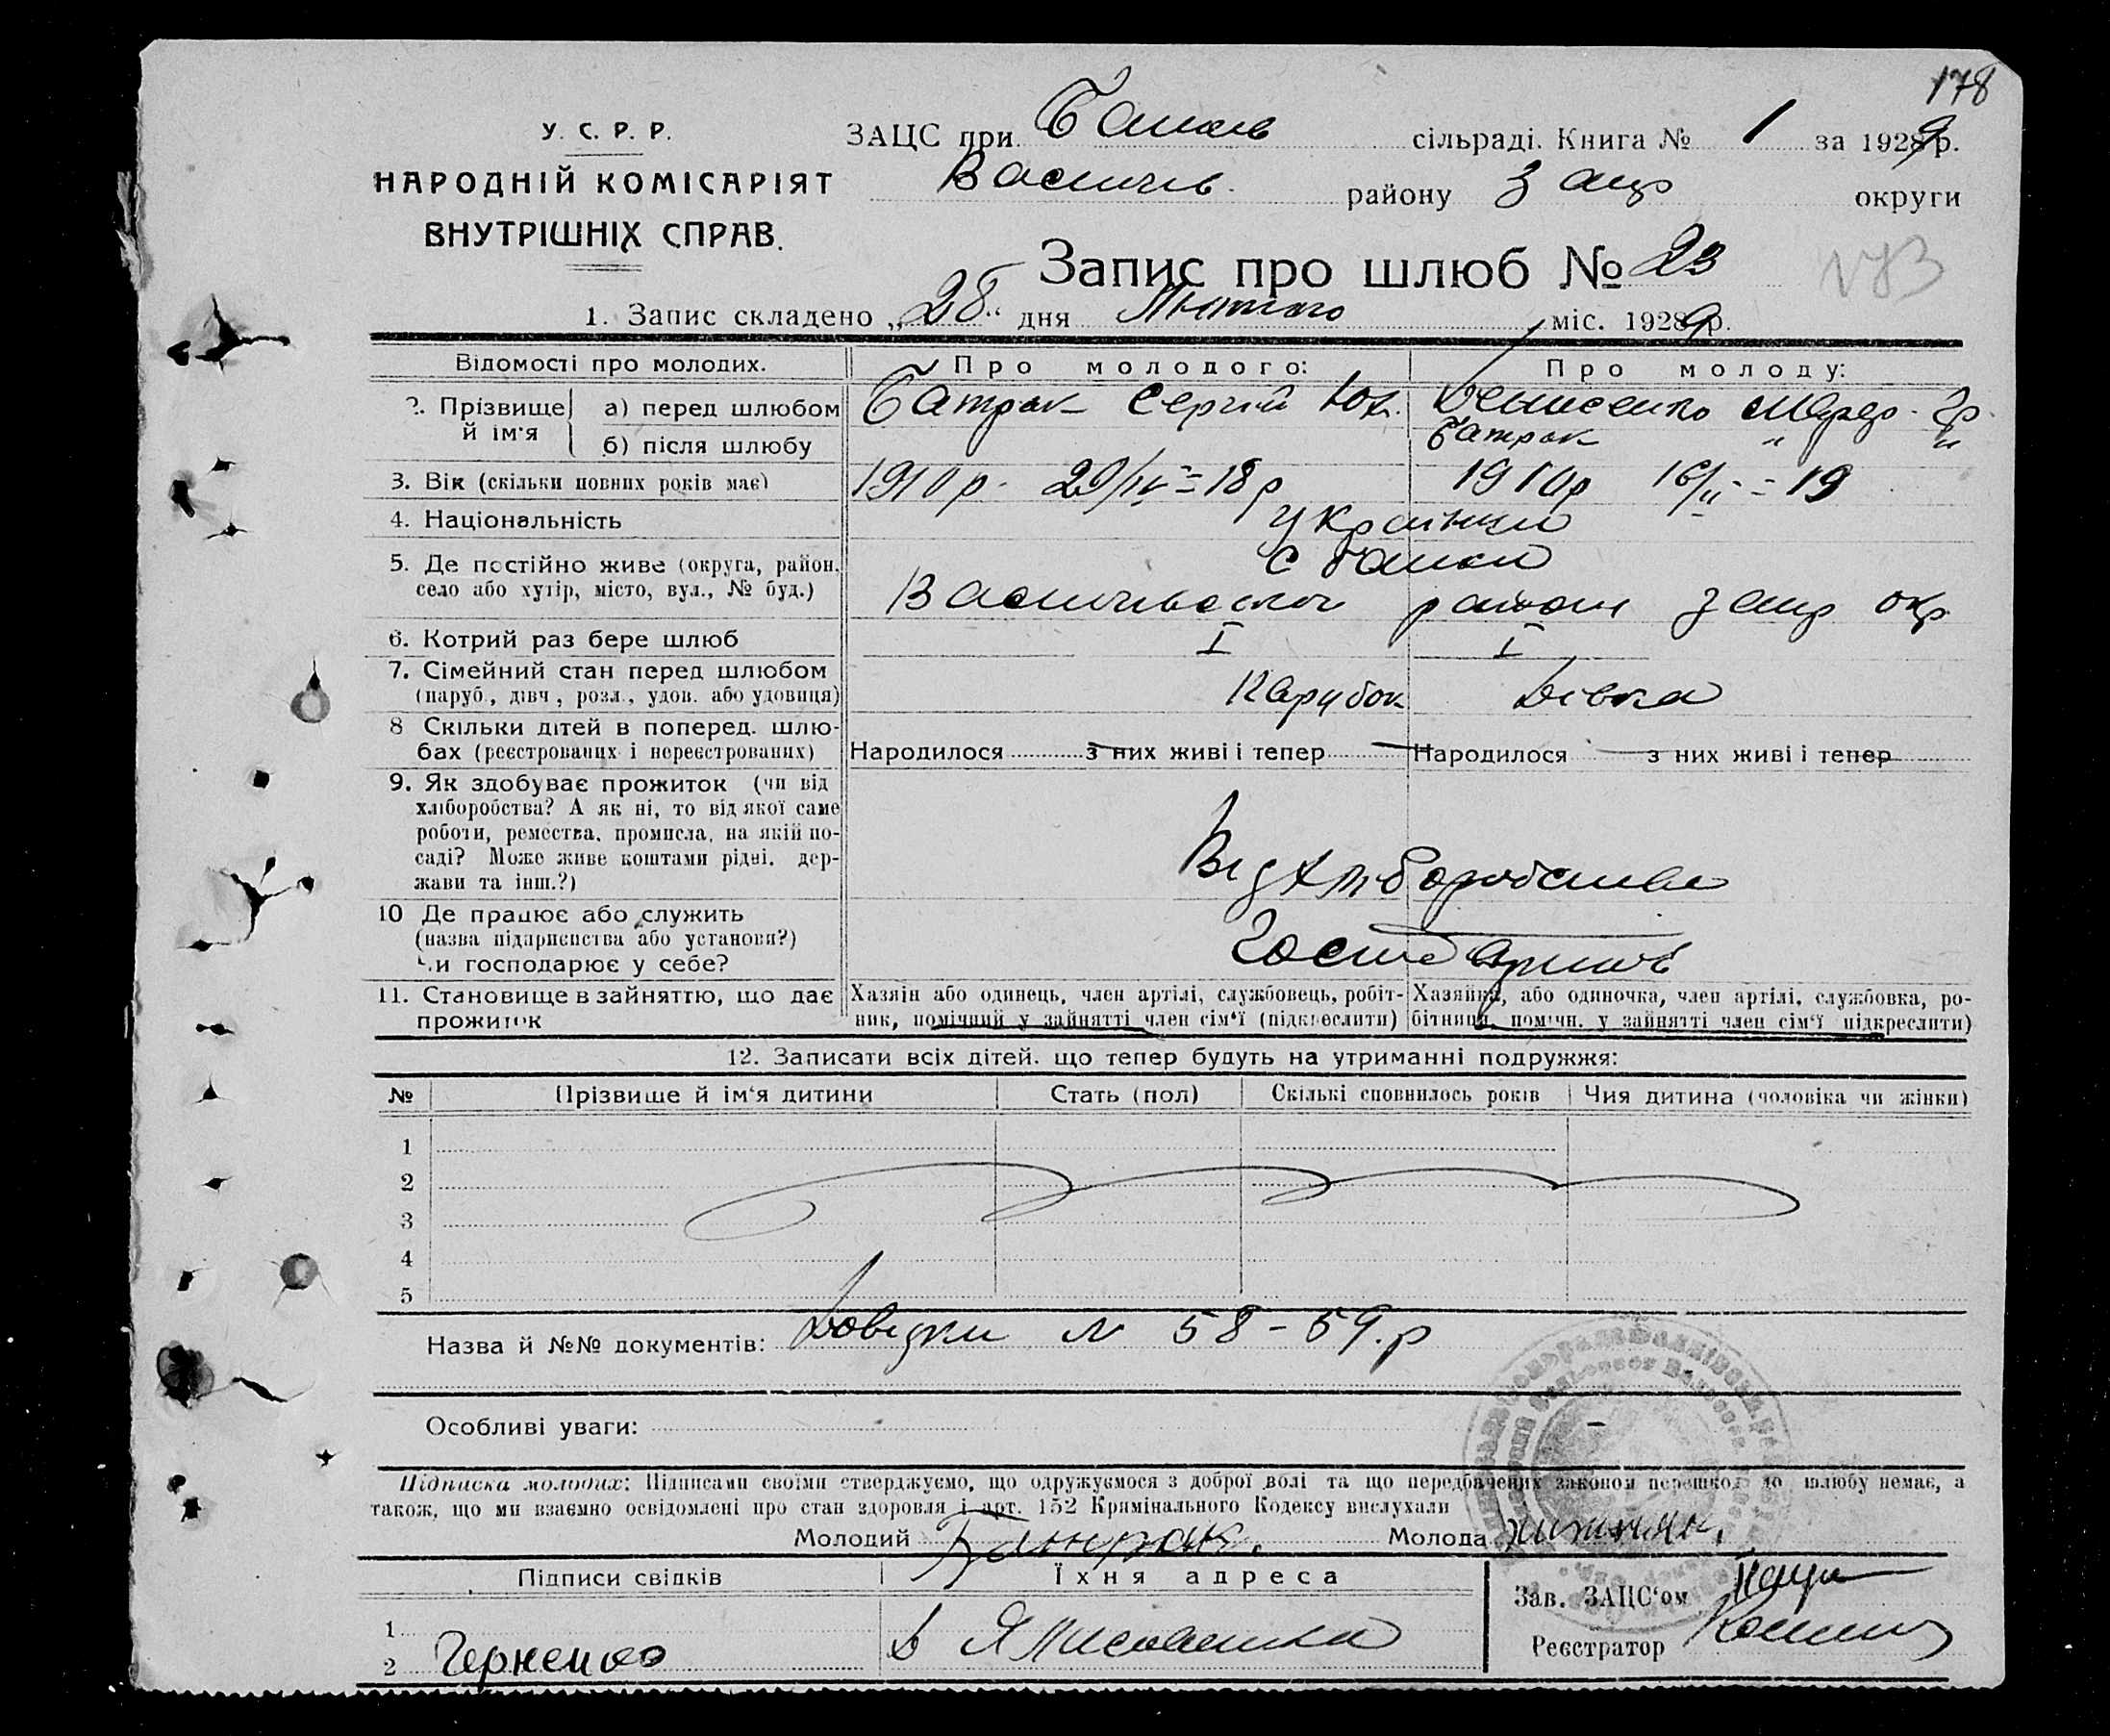 178
У. С. Р. Р.
НАРОДНІЙ КОМІСАРІЯТ
ВНУТРІШНІХ СПРАВ.
ЗАЦС при сільраді. Книга № 1 за 1929 р.
Василів. району Запр округи
Запис про шлюб № 23
173
1. Запис складено „28“ дня Лютого міс. 1929 р.
Відомості про молодих. Про молодого: Про молоду:
2. Прізвище й ім'я а) перед шлюбом Батрак Сергій Юх. Денисенко Гр.
б) після шлюбу Батрак " "
3. Вік (скільки повних років має) 1910 р. 29/IV = 18 р 1910 р 16/II - = 19
4. Національність українци
5. Де постійно живе (округа, район, с Балки
село або хутір, місто, вул., № буд.) Василівського району Запр окр
6. Котрий раз бере шлюб I I
7. Сімейний стан перед шлюбом
(паруб., дівч, розл., удов. або удовиця) Парубок Дівка
8 Скільки дітей в поперед. шлю-
бах (реєстрованих і нереєстрованих) Народилося з них живі і тепер Народилося з них живі і тепер
9. Як здобуває прожиток (чи від
хліборобства? А як ні, то від якої саме
роботи, ремества, промисла, на якій по-
саді? Може живе коштами рідні, дер-
жави та інш.?)
Від хліборобства
10 Де працює або служить
(назва підприємства або установи?)
Чи господарює у себе?
11. Становище в зайняттю, що дає
прожиток
Хазяїн або одинець, член артілі, службовець, робіт-
ник, помічний у зайнятті член сім'ї (підкреслити)
Хазяйка, або одиночка, член артілі, службовка, ро-
бітниця, помічн. у зайнятті член сім'ї підкреслити)
12. Записати всіх дітей, що тепер будуть на утриманні подружжя:
№ Прізвище й ім'я дитини Стать (пол) Скількі сповнилось років Чия дитина (чоловіка чи жінки)
1
2
3
4
5
Назва й №№ документів: Довідки N 58-59.р
Особливі уваги: –
Підписка молодих: Підписами своїми стверджуємо, що одружуємося з доброї волі та що передбачених законом перешкод до шлюбу немає, а
також, що ми взаємно освідомлені про стан здоровля і арт. 152 Кримінального Кодексу вислухали
Молодий Батрак. Молода
Підписи свідків Їхня адреса Зав. ЗАЦС'ом
1
2 Черненко Реєстратор